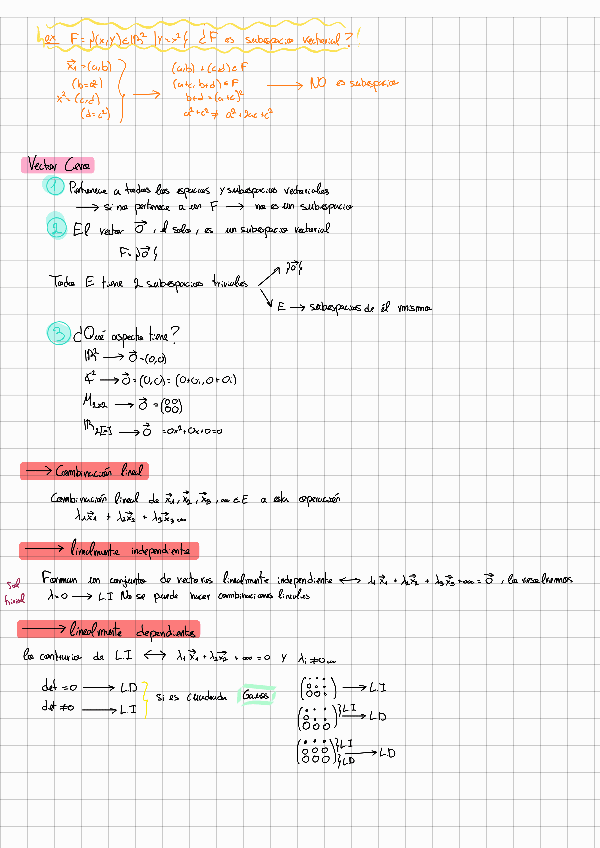 ex F = {(x,y) ∈ ℝ² | y = x²} ¿F es subespacio vectorial?
x⃗₁ = (a,b) (a,b) + (c,d) ∈ F
(b = a²) (a+c, b+d) ∈ F → NO es subespacio
x² = (c,d) → b+d = (a+c)²
(d = c²) a² + c² ≠ a² + 2ac + c²
Vector Cero
1 Pertenece a todos los espacios y subespacios vectoriales
→ si no pertenece a un F → no es un subespacio
2 El vector 0⃗, él solo, es un subespacio vectorial
F = {0⃗}
{0⃗}
Todo E tiene 2 subespacios triviales
E → subespacios de él mismo
3 ¿Qué aspecto tiene?
ℝ² → 0⃗ = (0,0)
ℂ² → 0⃗ = (0,0) = (0+0i, 0+0i)
M₂ₓ₂ → 0⃗ = (00 00)
ℝ₂[x] → 0⃗ = 0x² + 0x + 0 = 0
→ Combinación lineal
Combinación lineal de x⃗₁, x⃗₂, x⃗₃, ... ∈ E a esta operación
λ₁x⃗₁ + λ₂x⃗₂ + λ₃x⃗₃ ...
→ linealmente independiente
Sol trivial
Forman un conjunto de vectores linealmente independiente ⟷ λ₁x⃗₁ + λ₂x⃗₂ + λ₃x⃗₃ + ... = 0⃗, lo resolvemos
λ=0 → L.I No se puede hacer combinaciones lineales
→ linealmente dependientes
lo contrario de L.I ⟷ λ₁x⃗₁ + λ₂x⃗₂ + ... = 0 y λᵢ ≠ 0 ...
det = 0 → L.D
det ≠ 0 → L.I
si es cuadrada Gauss
→ L.I
} LI → LD
} LI
} LD → LD